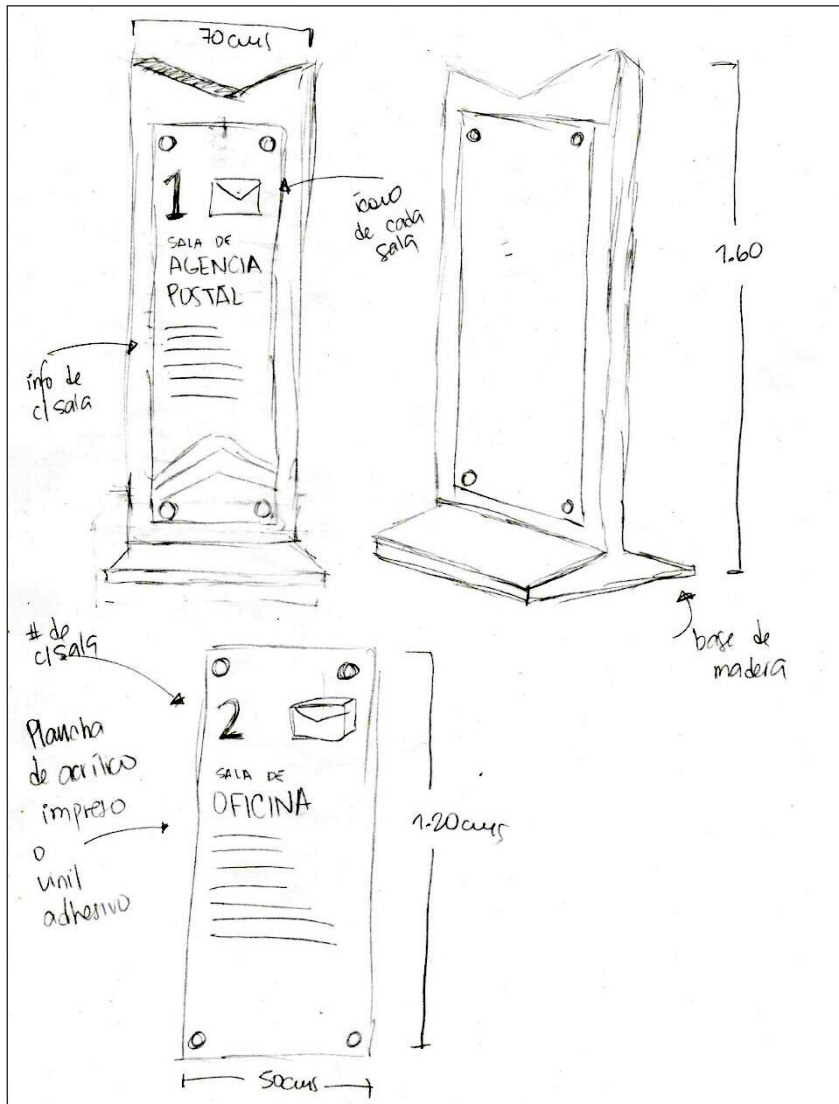 70cms
1
SALA DE
AGENCIA
POSTAL
ícono
de cada
sala
info de
c/sala
1.60
base de
madera
# de
c/sala
2
SALA DE
OFICINA
Plancha
de acrílico
impreso
o
vinil
adhesivo
1.20cms
50cms